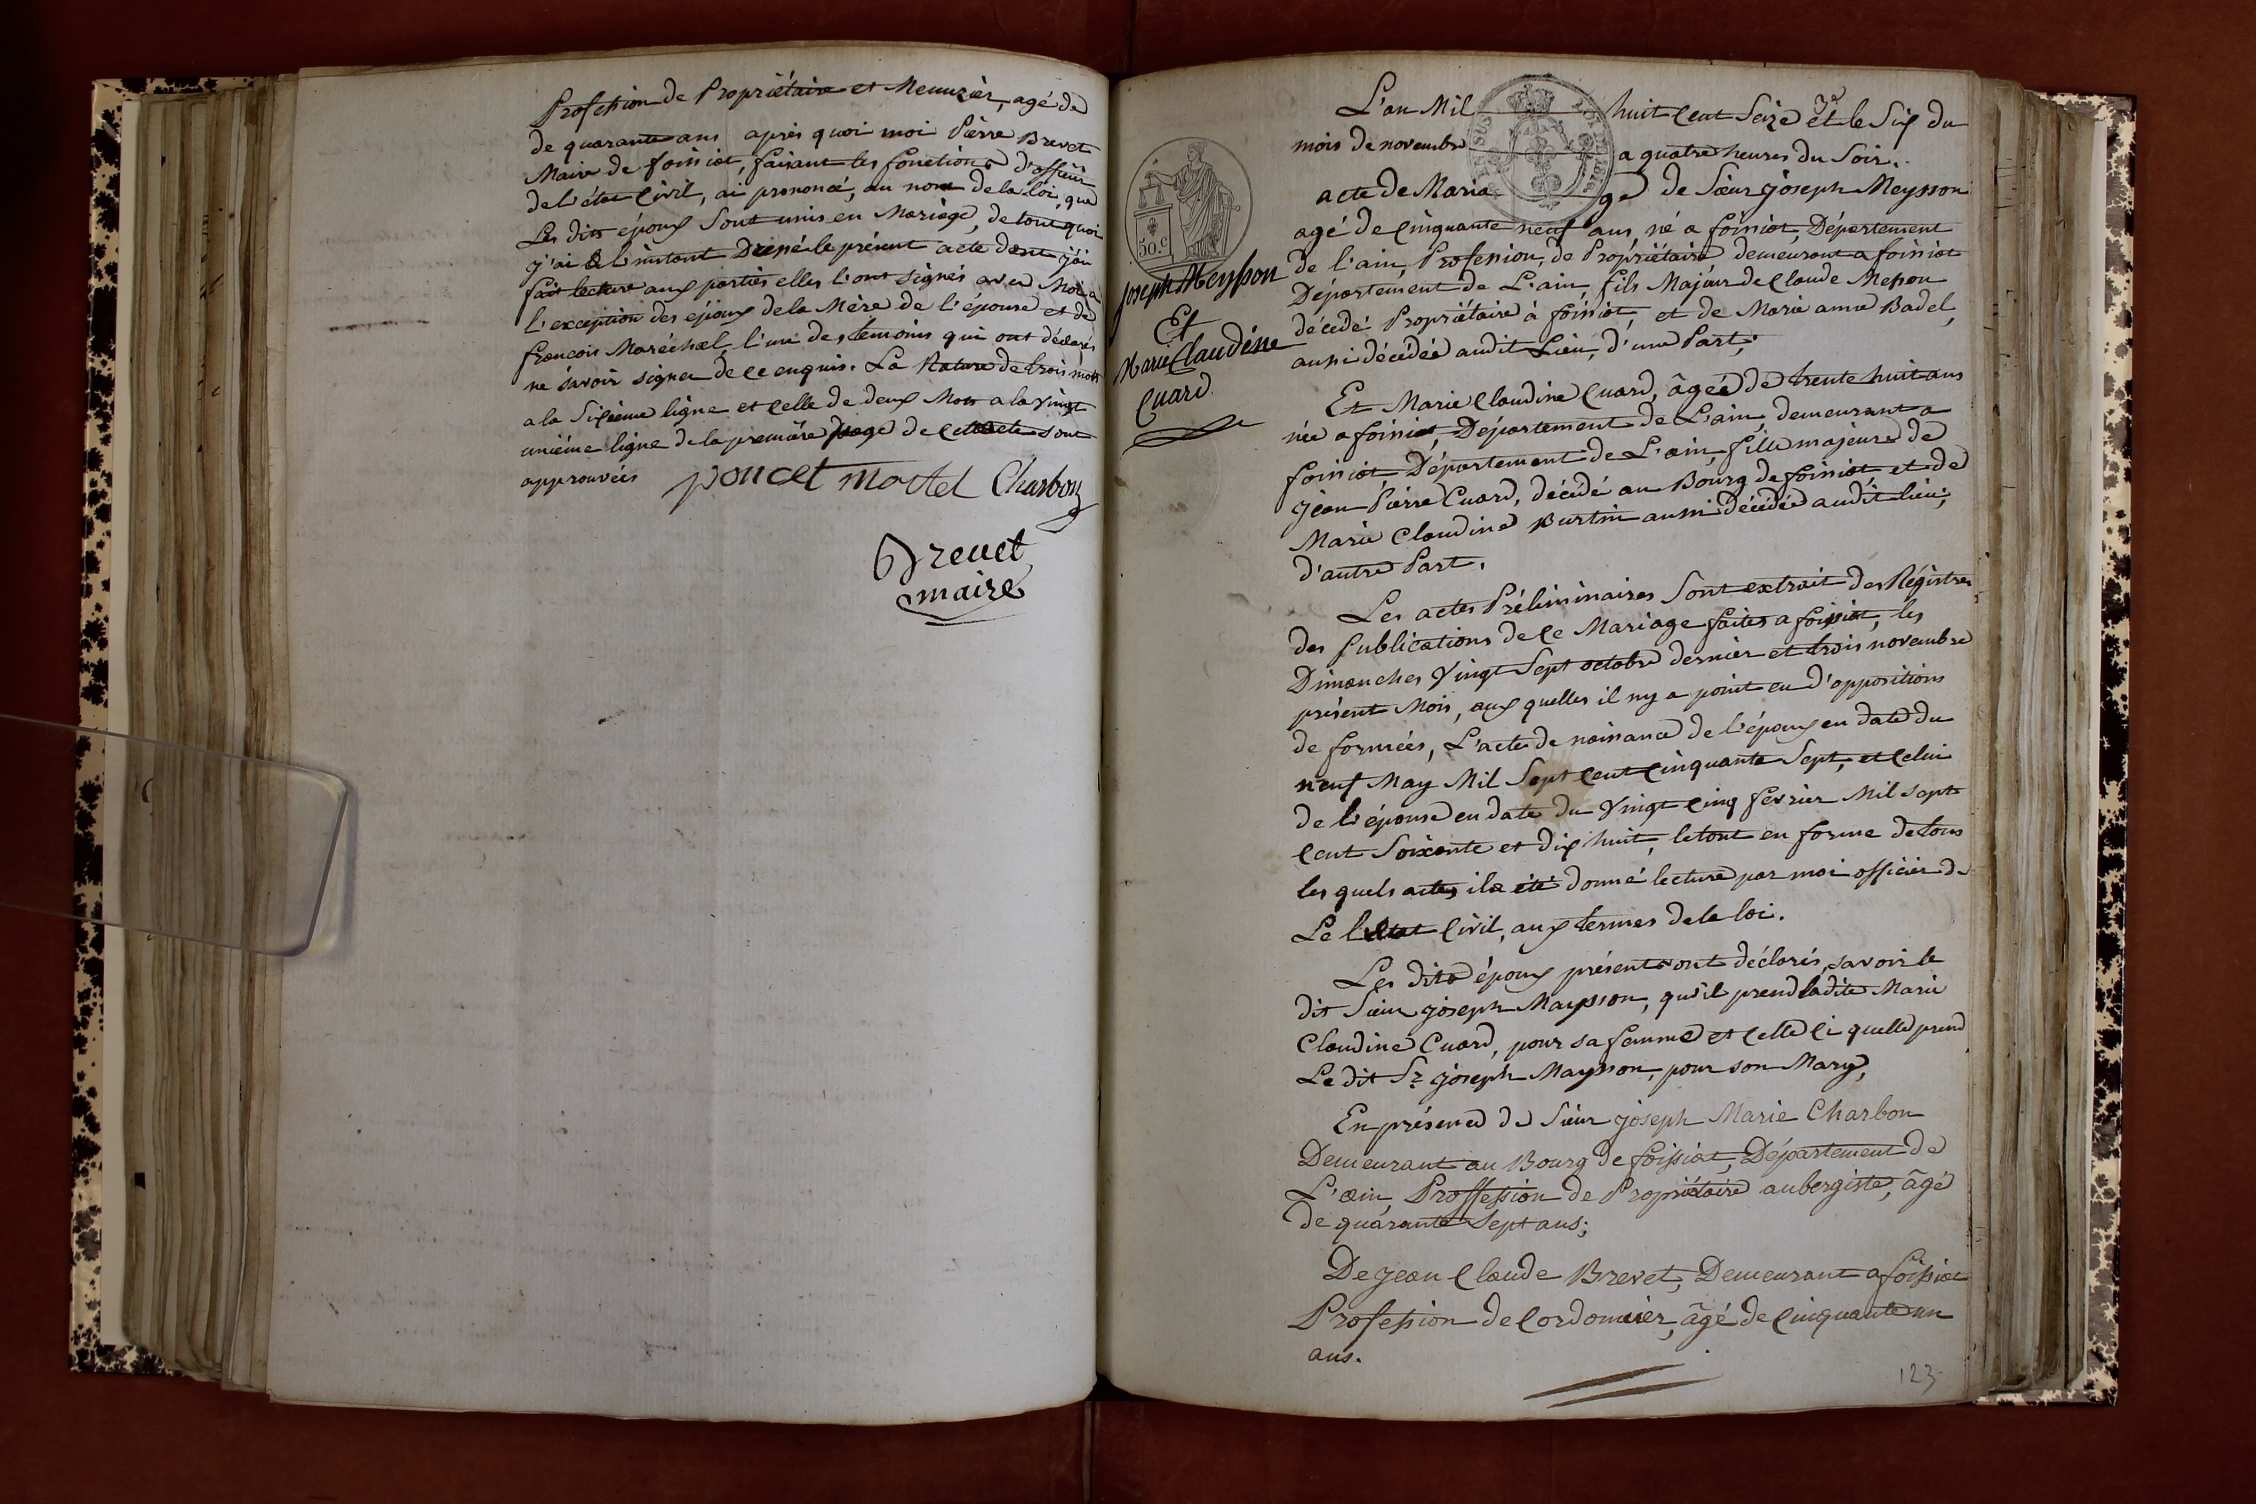 Profession de Propriétaire et Menuzier, agé de
de quarante ans après quoi moi Pierre Brevet
Maire de foissiat, faisant les fonctions d'officier
de l'état Civil, ai prononcé, au nom de la loi, que
Les dits époux sont unis en Mariage, de tout quoi
j'ai à l'instant Dressé le présent acte dont j'ai
fait lecture aux parties elles l'ont signés avec Moi a
l'exception des époux de la Mère de l'épouse et de
françois Maréchal, l'un des temoins qui ont déclarés
ne savoir signer de ce enquis. La Rature de trois mots
a la Sixième ligne et celle de deux Mots a la vingt
unième ligne de la première page de cet acte sont
approuvées
poncet mottet Charbon
Brevet
maire
L'an Mil huit Cent Seize et le Six du
mois de novembre a quatre heures du Soir.
acte de Maria ge de Sieur joseph Meysson
agé de Cinquante neuf ans, né a foissiat, Département
de l'ain, Profession, de Propriétaire demeurant a foissiat
Département de L'ain, fils Majeur de Claude Messon
décédé Propriétaire à foissiat, et de Marie anne Badel,
aussi décédée audit Lieu, d'une Part,
50.c
joseph Meysson
Et
Marie Claudine
Cuard
Et Marie Claudine Cuard, âgée de trente huit ans
née a foissiat, Département de L'ain, demeurant a
foissiat, Département de L'ain, fille majeure de
jean Pierre Cuard, décédé au Bourg de foissiat et de
Marie Claudine Burtin aussi décédée audit lieu,
d'autre Part.
Les actes Préliminaires Sont extrait des Régistres
des Publications de Ce Mariage faites a foissiat, les
Dimanches Vingt Sept octobre dernier et trois novembre
présent Mois, aux quelles il ny a point eu d'oppositions
de formées, L'acte de naissance de l'époux en date du
neuf May Mil Sept Cent Cinquante Sept, et Celui
de l'épouse en date du Vingt Cinq fevrier Mil sept
Cent Soixante et dix huit, le tout en forme de tous
les quels actes il a été donné lecture par moi officier de
Le l'Etat Civil, aux termes de la loi.
Les dits époux présents ont déclarés, savoir le
dit Sieur joseph Maysson, qu'il prend ladite Marie
Claudine Cuard, pour sa femme et Celle Ci quelle prend
Le dit Sr joseph Maysson, pour son Mary,
En présence de Sieur joseph Marie Charbon
Demeurant au Bourg de foissiat, Département de
L'ain, Proffession de Propriétaire aubergiste, âgé
de quarante Sept ans;
De jean Claude Brevet, Demeurant a foissiat
Profession de Cordonnier, âgé de Cinquante un
ans.
123